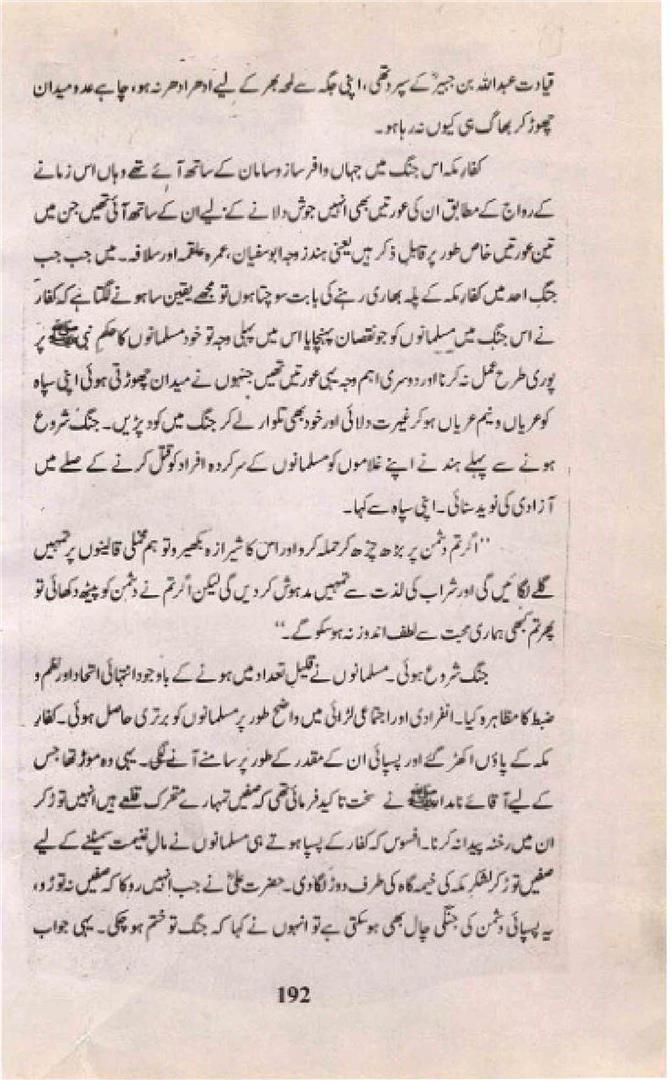 قیادت عبداللہ بن جبیرؓ کے سپرد تھی، اپنی جگہ سے لمحہ بھر کے لیے ادھر ادھر نہ ہو، چاہے عدو میدان
چھوڑ کر بھاگ ہی کیوں نہ رہا ہو۔
کفار مکہ اس جنگ میں جہاں وافر ساز و سامان کے ساتھ آئے تھے وہاں اس زمانے
کے رواج کے مطابق ان کی عورتیں بھی انہیں جوش دلانے کے لیے ان کے ساتھ آئی تھیں جن میں
تین عورتیں خاص طور پر قابل ذکر ہیں یعنی ہند زوجہ ابوسفیان، عمرہ علقمہ اور سلافہ۔ میں جب جب
جنگ احد میں کفار مکہ کے پلہ بھاری رہنے کی بابت سوچتا ہوں تو مجھے یقین سا ہونے لگتا ہے کہ کفار
نے اس جنگ میں مسلمانوں کو جو نقصان پہنچایا اس میں پہلی وجہ تو خود مسلمانوں کا حکم نبی ﷺ پر
پوری طرح عمل نہ کرنا اور دوسری اہم وجہ یہی عورتیں تھیں جنہوں نے میدان چھوڑتی ہوئی اپنی سپاہ
کو عریاں و نیم عریاں ہو کر غیرت دلائی اور خود بھی تلوار لے کر جنگ میں کود پڑیں۔ جنگ شروع
ہونے سے پہلے ہند نے اپنے غلاموں کو مسلمانوں کے سرکردہ افراد کو قتل کرنے کے صلے میں
آزادی کی نوید سنائی۔ اپنی سپاہ سے کہا۔
"اگر تم دشمن پر بڑھ چڑھ کر حملہ کرو اور اس کا شیرازہ بکھیرو تو ہم مخملی قالینوں پر تمہیں
گلے لگائیں گی اور شراب کی لذت سے تمہیں مدہوش کر دیں گی لیکن اگر تم نے دشمن کو پیٹھ دکھائی تو
پھر تم کبھی ہماری محبت سے لطف اندوز نہ ہو سکو گے۔"
جنگ شروع ہوئی۔ مسلمانوں نے قلیل تعداد میں ہونے کے باوجود انتہائی اتحاد اور نظم و
ضبط کا مظاہرہ کیا۔ انفرادی اور اجتماعی لڑائی میں واضح طور پر مسلمانوں کو برتری حاصل ہوئی۔ کفار
مکہ کے پاؤں اکھڑ گئے اور پسپائی ان کے مقدر کے طور پر سامنے آنے لگی۔ یہی وہ موڑ تھا جس
کے لیے آقائے نامدار ﷺ نے سخت تاکید فرمائی تھی کہ صفیں تمہارے متحرک قلعے ہیں انہیں توڑ کر
ان میں رخنہ پیدا نہ کرنا۔ افسوس کہ کفار کے پسپا ہوتے ہی مسلمانوں نے مال غنیمت سمیٹنے کے لیے
صفیں توڑ کر لشکر مکہ کی خیمہ گاہ کی طرف دوڑ لگا دی۔ حضرت علیؓ نے جب انہیں روکا کہ صفیں نہ توڑو،
یہ پسپائی دشمن کی جنگی چال بھی ہو سکتی ہے تو انہوں نے کہا کہ جنگ تو ختم ہو چکی۔ یہی جواب
192